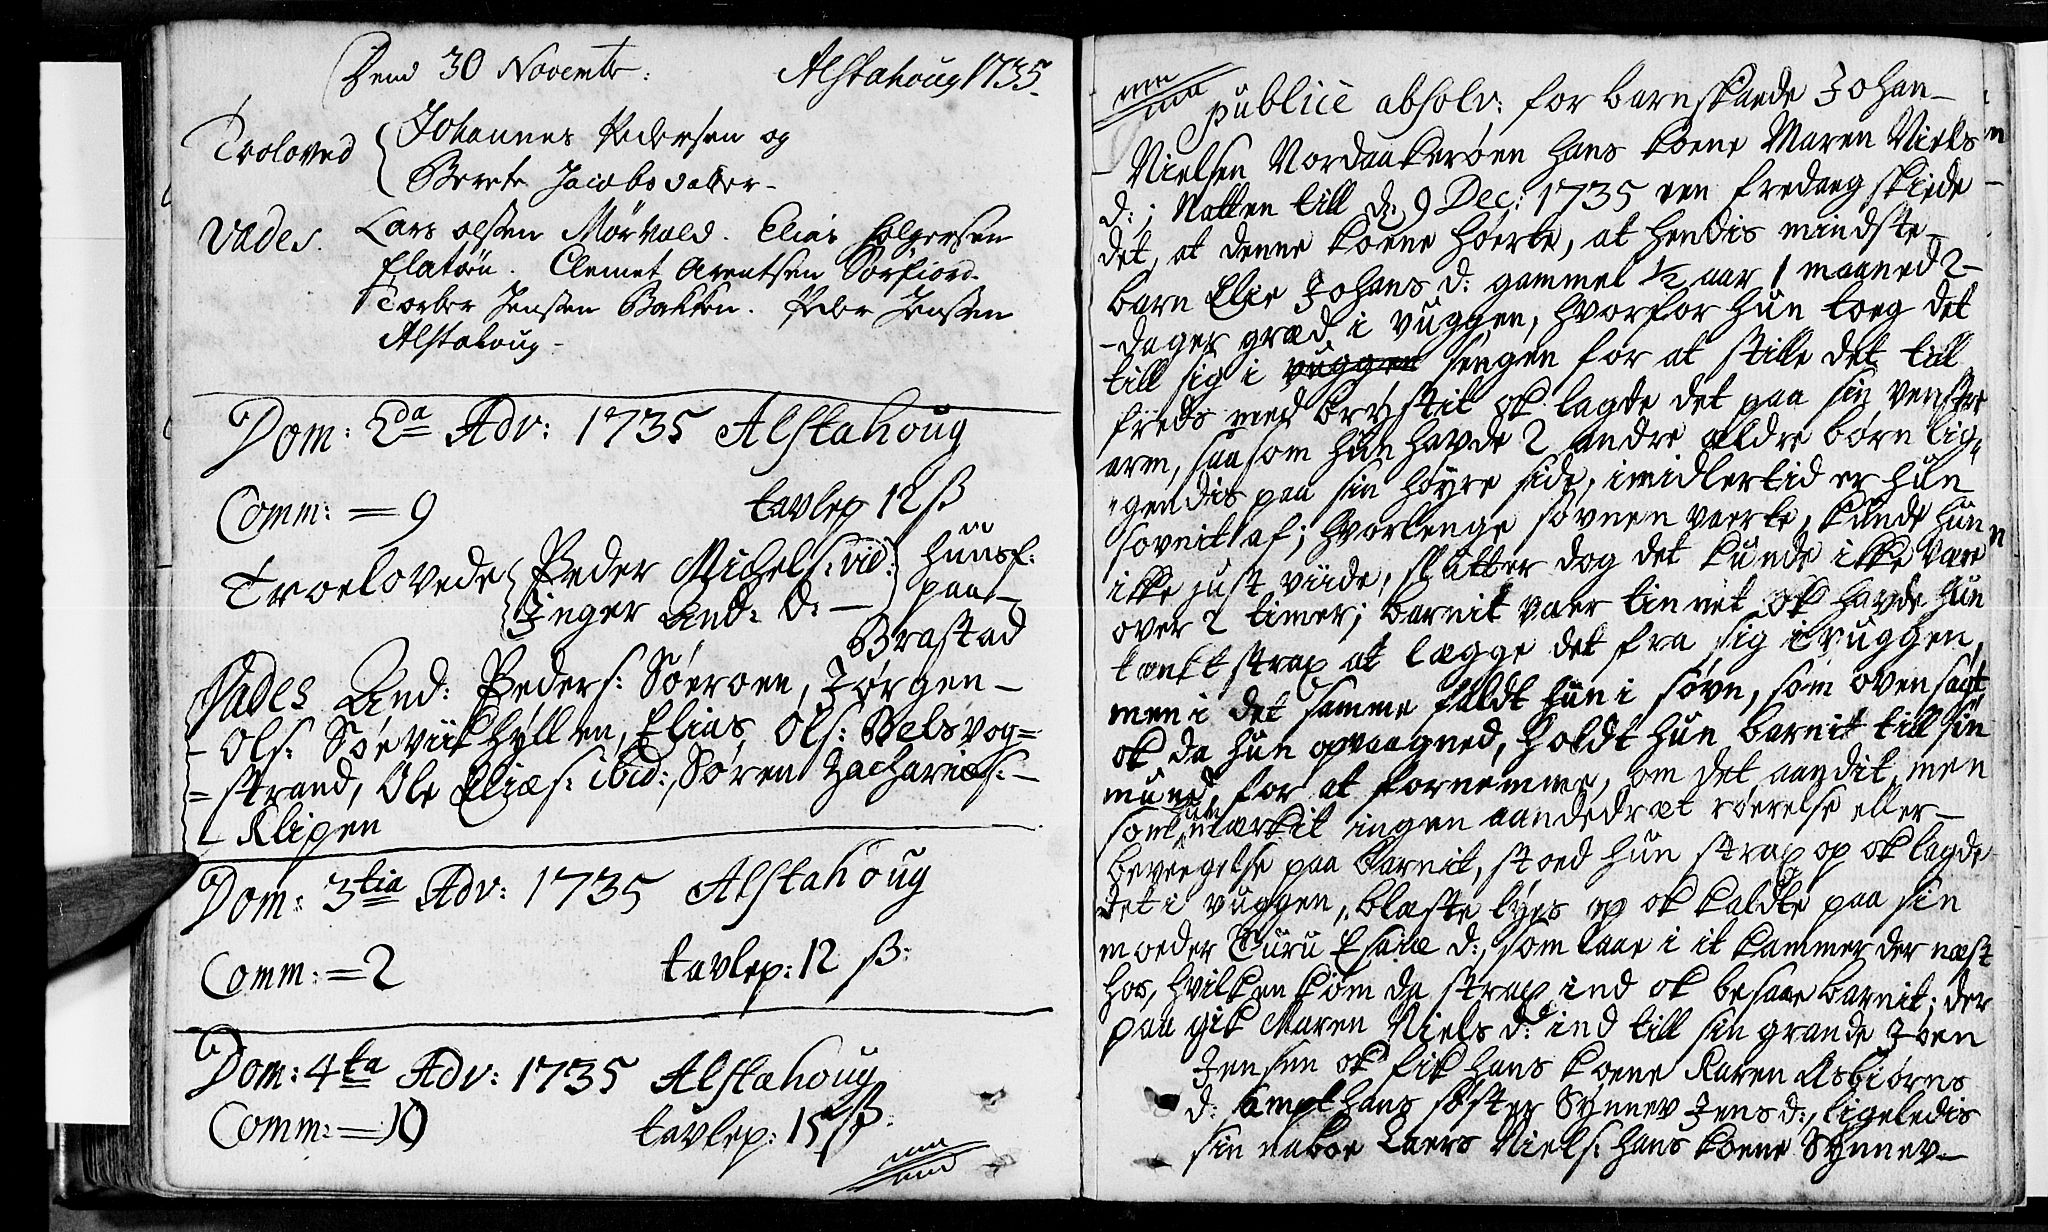 Dend 30 Novembr: Alstahoug 1735.
Troloved Johannes Pedersen og
Berete Jacobsdatter-
Vades. Lars olssen Mörvald. Elias Holgersen
flatöen. Clemet Arentsen Sörfiord.
Torber Jenssen Bakken. Peder Jenssen
Alstahoug-
Dom: 2da Adv: 1735 Alstahoug
Comm: = 9 tavlep 12 ß
Troelovede Peder Michels: vid: huusf:
Inger And: D: — paa
Brastad
Vades And: Peders: Söeroen, Jörgen-
Ols: Söeviik hyllen, Elias Ols: Belsvog=
=strand, Ole Eliæs: ibid:, Sören Zachariæs:-
Klipen
Dom: 3tia Adv: 1735 Alstahoug
Comm: = 2 tavlep: 12 ß:
Dom: 4ta Adv: 1735 Alstahoug
Comm: = 10 tavlep: 15 ß:
publicè absolv: for barnskade Johan-
Nielsen Nordaakerøen hans koene Maren Niels
d: ; Natten till d. 9 Dec: 1735 een fredag skiede
det, at denne koene hørte, at hendis mindste-
barn Elie Johans d: gammel ½ aar 1 maaned 2-
-dager græd i vuggen, hvorfor hun toeg det
till sig i vuggen sengen for at stille det till
freds med brystit ok lagde det paa sin venstre
arm, saasom hun havde 2 andre ældre børn lig„
„gendis paa sin høyre side, imidlertid er hun
sovnit af; hvorlenge søvnen vaerte, kunde hun
ikke just viide, slutter dog det kunde ikke vare
over 2 timer; barnit vaer tinnet ok havde hun
tænkt strax at lægge det fra sig i vuggen,
men i det samme faldt hun i søvn, som oven sagt,
ok da hun opvaagned, holdt hun barnit till sin
mund for at fornemme, om det aandit, men
som hun mærkit ingen aandedræt røerelse eller-
bevegelse paa barnit, stoed hun strax op ok lagde
det i vuggen, blæste lyes op ok kaldte paa sin
moeder Turu Esaiæ d:, som laae i it kammer der næst
hos, hvilken kom da strax ind ok besaae barnit; der
paa gik Maren Niels d: ind till sin grande Joen
Jensen ok fik hans koene Karen Asbiørns
d: sampt hans søster Synnev Jens d:, ligeledis
sin naboe Laers Niels: hans koene Synnev-